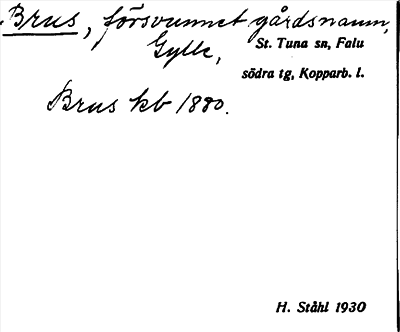 Brus, försvunnet gårdsnamn,
Gylle,
St. Tuna sn, Falu
södra tg, Kopparb. l.
Brus kb 1880.
H. Ståhl 1930